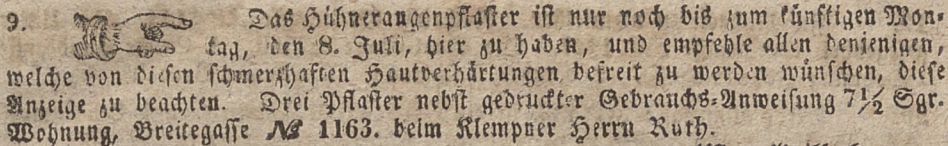 9. Das Hühneraugenpflaster ist nur noch bis zum künftigen Mon-
tag, den 8. Juli, hier zu haben, und empfehle allen denjenigen,
welche von diesen schmerzhaften Hautverhärtungen befreit zu werden wünschen, diese
Anzeige zu beachten. Drei Pflaster nebst gedruckter Gebrauchs-Anweisung 7½ Sgr.
Wohnung, Breitegasse № 1163. beim Klempner Herrn Ruth.